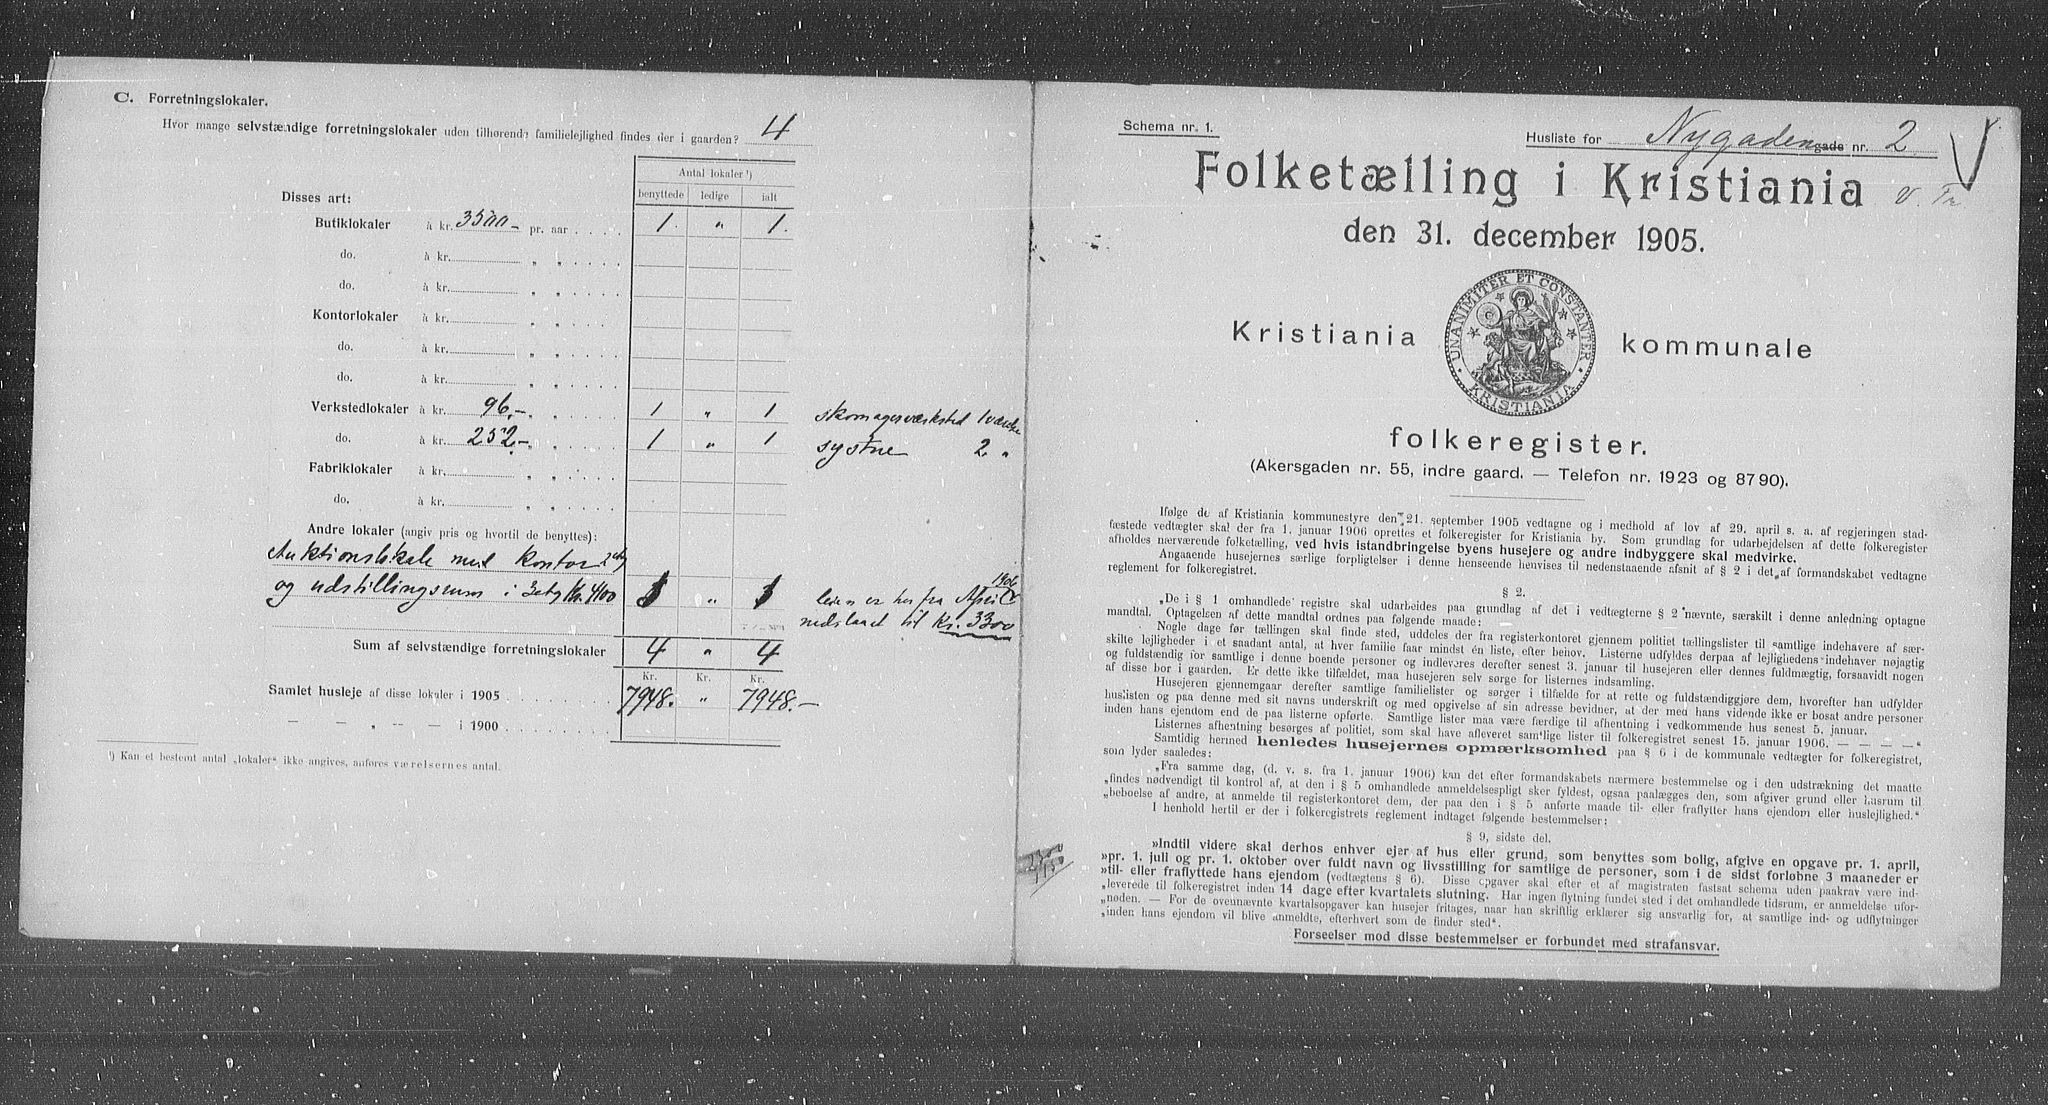 C. Forretningslokaler.
Hvor mange selvstændige forretningslokaler uden tilhørende familielejlighed findes der i gaarden? 4
Antal lokaler ¹)
Disses art: benyttede ledige ialt
Butiklokaler à kr. 3500- pr. aar 1. " 1.
do. à kr. " "
do. à kr. " "
Kontorlokaler à kr. " "
do. à kr. " "
do. à kr. " "
Verkstedlokaler à kr. 96.- " 1 " 1 skomagerværksted 1 værelse
do. à kr. 252.- " 1 " 1 systue 2 "
Fabriklokaler à kr. " "
do. à kr. " "
Andre lokaler (angiv pris og hvortil de benyttes):
Auktionslokale med kontor i 2 etg
og udstillingsrum i 3 etg Kr. 4100 1 " 1 leien er her fra April 1906
nedslaaet til Kr. 3300
Sum af selvstændige forretningslokaler 4 " 4
Kr. Kr. Kr.
Samlet husleje af disse lokaler i 1905 7948.- " 7948.-
— — „ — — i 1900
¹) Kan et bestemt antal „lokaler“ ikke angives, anføres værelsernes antal.
Schema nr. 1.
Husliste for Nygaden gade nr. 2
Folketælling i Kristiania
v. Tr.
den 31. december 1905.
UNANIMITER ET CONSTANTER
KRISTIANIA
Kristiania kommunale
folkeregister.
(Akersgaden nr. 55, indre gaard. — Telefon nr. 1923 og 8790).
Ifølge de af Kristiania kommunestyre den 21. september 1905 vedtagne og i medhold af lov af 29. april s. a. af regjeringen stad-
fæstede vedtægter skal der fra 1. januar 1906 oprettes et folkeregister for Kristiania by. Som grundlag for udarbejdelsen af dette folkeregister
afholdes nærværende folketælling, ved hvis istandbringelse byens husejere og andre indbyggere skal medvirke.
Angaaende husejernes særlige forpligtelser i denne henseende henvises til nedenstaaende afsnit af § 2 i det af formandskabet vedtagne
reglement for folkeregistret.
§ 2.
„De i § 1 omhandlede registre skal udarbeides paa grundlag af det i vedtægterne § 2 nævnte, særskilt i denne anledning optagne
mandtal. Optagelsen af dette mandtal ordnes paa følgende maade:
Nogle dage før tællingen skal finde sted, uddeles der fra registerkontoret gjennem politiet tællingslister til samtlige indehavere af sær-
skilte lejligheder i et saadant antal, at hver familie faar mindst én liste, efter behov. Listerne udfyldes derpaa af lejlighedens indehaver nøjagtig
og fuldstændig for samtlige i denne boende personer og indleveres derefter senest 3. januar til husejeren eller dennes fuldmægtig, forsaavidt nogen
af disse bor i gaarden. Er dette ikke tilfældet, maa husejeren selv sørge for listernes indsamling.
Husejeren gjennemgaar derefter samtlige familielister og sørger i tilfælde for at rette og fuldstændiggjøre dem, hvorefter han udfylder
huslisten og paa denne med sit navns underskrift og med opgivelse af sin adresse bevidner, at der med hans vidende ikke er bosat andre personer
inden hans ejendom end de paa listerne opførte. Samtlige lister maa være færdige til afhentning i vedkommende hus senest 5. januar.
Listernes afhentning besørges af politiet, som skal have afleveret samtlige lister til folkeregistret senest 15. januar 1906. — — — —“
Samtidig hermed henledes husejernes opmærksomhed paa § 6 i de kommunale vedtægter for folkeregistret,
som lyder saaledes:
„Fra samme dag, (d. v. s. fra 1. januar 1906) kan det efter formandskabets nærmere bestemmelse og i den udstrækning det maatte
„findes nødvendigt til kontrol af, at den i § 5 omhandlede anmeldelsespligt sker fyldest, ogsaa paalægges den, som afgiver grund eller husrum til
„beboelse af andre, at anmelde til registerkontoret dem, der paa den i § 5 anførte maade til- eller fraflytter hans ejendom eller huslejlighed.“
I henhold hertil er der i folkeregistrets reglement indtaget følgende bestemmelser:
§ 9, sidste del.
»Indtil videre skal derhos enhver ejer af hus eller grund, som benyttes som bolig, afgive en opgave pr. 1. april,
»pr. 1. juli og pr. 1. oktober over fuldt navn og livsstilling for samtlige de personer, som i de sidst forløbne 3 maaneder er
»til- eller fraflyttede hans ejendom (vedtægtens § 6). Disse opgaver skal efter et af magistraten fastsat schema uden paakrav være ind-
„leverede til folkeregistret inden 14 dage efter kvartalets slutning. Har ingen flytning fundet sted i det omhandlede tidsrum, er anmeldelse ufor-
„nøden. — For de ovennævnte kvartalsopgaver kan husejer fritages, naar han skriftlig erklærer sig ansvarlig for, at samtlige ind- og udflytninger
„inden hans ejendom vil blive anmeldte, efterhvert som de finder sted“.
Forseelser mod disse bestemmelser er forbundet med strafansvar.